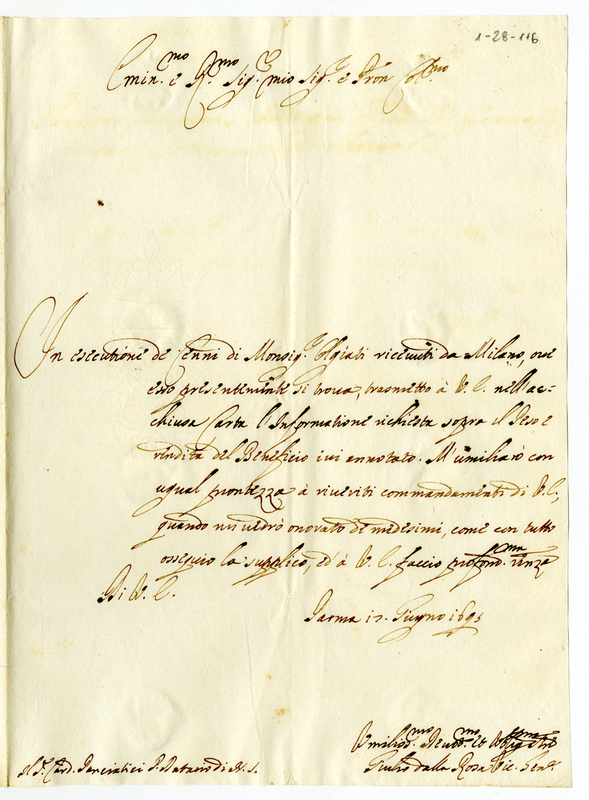 1-28-116
Emin.mo e R.mo Sig.e mio Sig.e e Pron Col.mo
In esecutione de Cenni di Monsig.r Olgiati ricevuti da Milano, ove
esso presentemente si trova, trasmetto à V. E. nell'ac-
chiusa Carta l'Informatione richiesta sopra il Peso e
rendita del Beneficio ivi annotato. M'umiliarò con
ugual prontezza à riveriti commandamenti di V. E,
quando mi vedrò onorato de medesimi, come con tutto
ossequio la supplico, ed' à V. E. faccio profond.ma riv.nza
Di V. E.
Parma 17. Giugno 1695
Umiliss.mo Devot.mo et Oblig.mo
Giulio dalla Rosa Vic. Gen.e
Sig.r Card. Panciatici P. Datario di N. S.